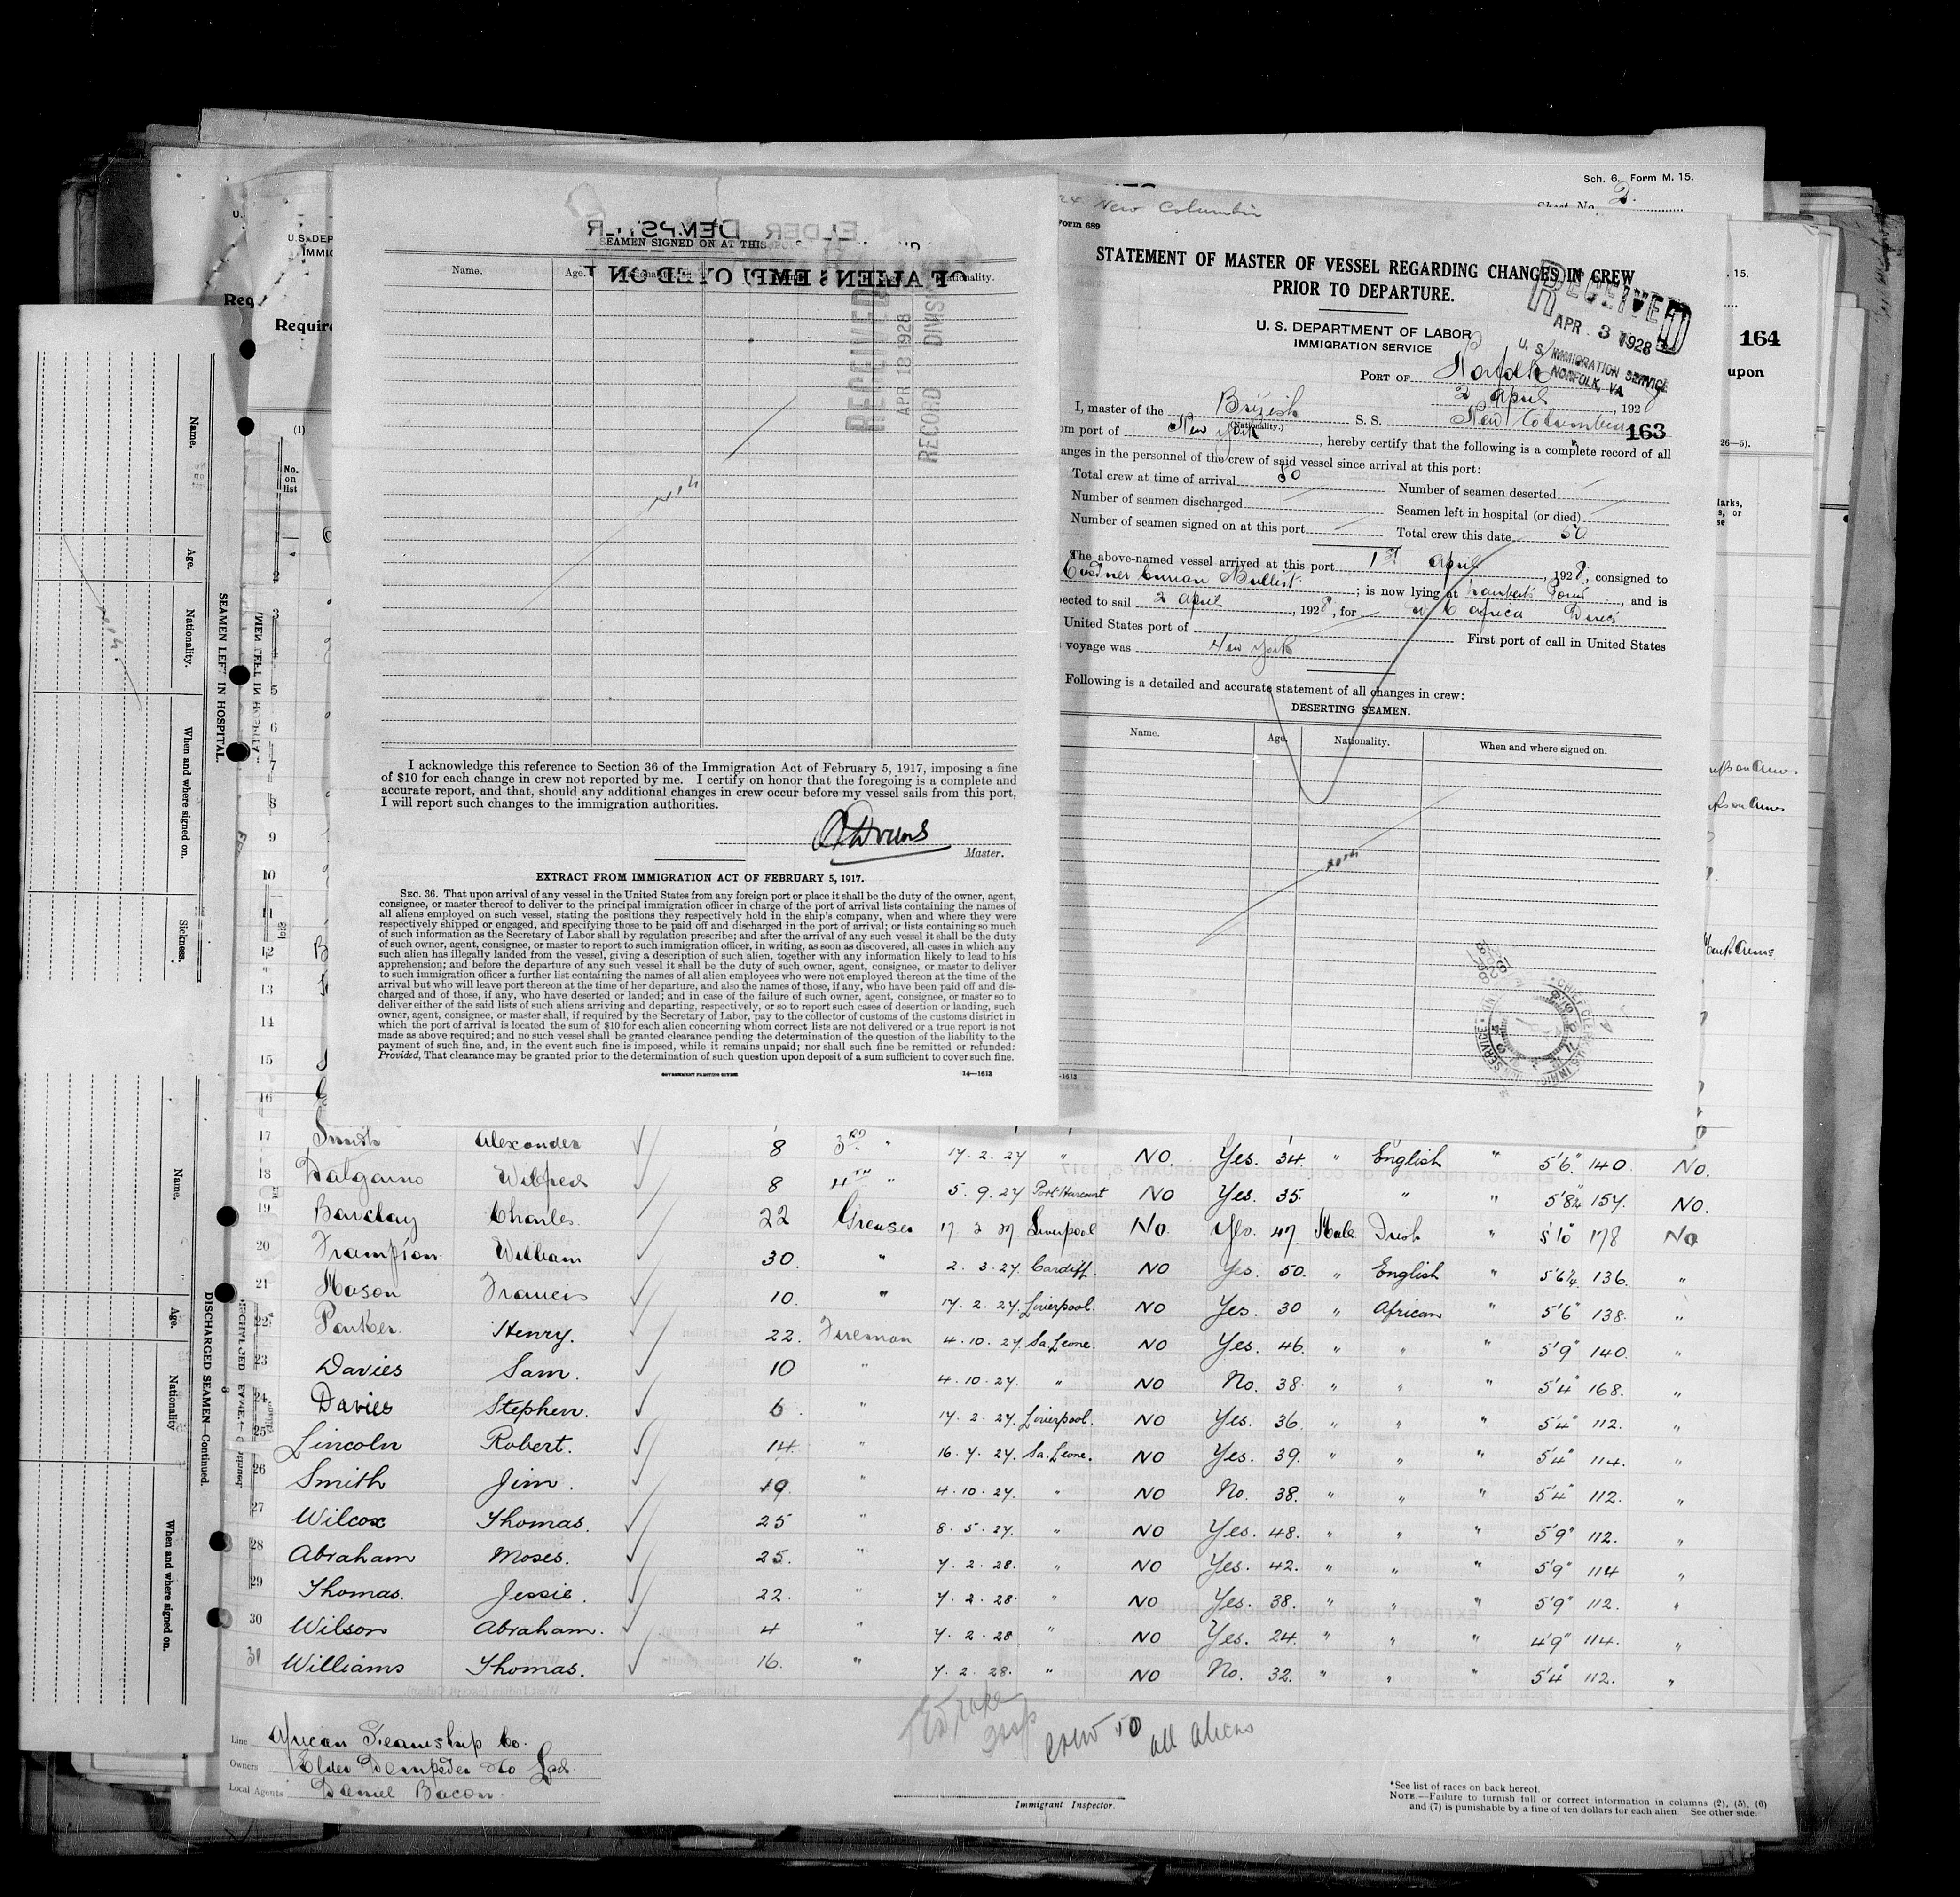 Sch. 6. Form M. 15.
2
New Columbia
Form 689
STATEMENT OF MASTER OF VESSEL REGARDING CHANGES IN CREW
PRIOR TO DEPARTURE.
U. S. DEPARTMENT OF LABOR
IMMIGRATION SERVICE
RECEIVED
APR 3 1928
U. S. IMMIGRATION SERVICE
NORFOLK, VA
PORT OF Norfolk
2 April, 1928
I, master of the British S. S. New Columbia
(Nationality.)
163
164
upon
om port of New York, hereby certify that the following is a complete record of all
anges in the personnel of the crew of said vessel since arrival at this port:
Total crew at time of arrival 50 Number of seamen deserted
Number of seamen discharged Seamen left in hospital (or died)
Number of seamen signed on at this port Total crew this date 50
The above-named vessel arrived at this port 1st April, 1928, consigned to
; is now lying at Lamberts Point, and is
ected to sail 2 April, 1928, for W C Africa Direct
United States port of First port of call in United States
voyage was New York
Following is a detailed and accurate statement of all changes in crew:
DESERTING SEAMEN.
Name. Age. Nationality. When and where signed on.
ELDER DEMPSTER
SEAMEN SIGNED ON AT THIS
Name. Age.
RECEIVED
APR 18 1928
RECORD DIVISION
I acknowledge this reference to Section 36 of the Immigration Act of February 5, 1917, imposing a fine
of $10 for each change in crew not reported by me. I certify on honor that the foregoing is a complete and
accurate report, and that, should any additional changes in crew occur before my vessel sails from this port,
I will report such changes to the immigration authorities.
Master.
EXTRACT FROM IMMIGRATION ACT OF FEBRUARY 5, 1917.
SEC. 36. That upon arrival of any vessel in the United States from any foreign port or place it shall be the duty of the owner, agent,
consignee, or master thereof to deliver to the principal immigration officer in charge of the port of arrival lists containing the names of
all aliens employed on such vessel, stating the positions they respectively hold in the ship's company, when and where they were
respectively shipped or engaged, and specifying those to be paid off and discharged in the port of arrival; or lists containing so much
of such information as the Secretary of Labor shall by regulation prescribe; and after the arrival of any such vessel it shall be the duty
of such owner, agent, consignee, or master to report to such immigration officer, in writing, as soon as discovered, all cases in which any
such alien has illegally landed from the vessel, giving a description of such alien, together with any information likely to lead to his
apprehension; and before the departure of any such vessel it shall be the duty of such owner, agent, consignee, or master to deliver
to such immigration officer a further list containing the names of all alien employees who were not employed thereon at the time of the
arrival but who will leave port thereon at the time of her departure, and also the names of those, if any, who have been paid off and dis-
charged and of those, if any, who have deserted or landed; and in case of the failure of such owner, agent, consignee, or master so to
deliver either of the said lists of such aliens arriving and departing, respectively, or so to report such cases of desertion or landing, such
owner, agent, consignee, or master shall, if required by the Secretary of Labor, pay to the collector of customs of the customs district in
which the port of arrival is located the sum of $10 for each alien concerning whom correct lists are not delivered or a true report is not
made as above required; and no such vessel shall be granted clearance pending the determination of the question of the liability to the
payment of such fine, and, in the event such fine is imposed, while it remains unpaid; nor shall such fine be remitted or refunded:
Provided, That clearance may be granted prior to the determination of such question upon deposit of a sum sufficient to cover such fine.
GOVERNMENT PRINTING OFFICE 14—1613
Name. Age. Nationality. When and where signed on. Sickness.
SEAMEN LEFT IN HOSPITAL.
Name. Age. Nationality When and where signed on.
DISCHARGED SEAMEN—Continued.
No. on list
3
5
6
7
8
9
10
11
12
13
14
15
16
17 Smith Alexander 8 3rd " 17.2.27 " NO Yes. 34. " English " 5'6" 140. No.
18 Dalgarno Wilfred 8 4th " 5.9.27 Port Harcourt NO Yes. 35. " " 5'8¼ 157. No.
19 Barclay Charles 22 Greaser 17 2 27 Liverpool No. Yes. 47 Male Irish " 5'10" 178 No
20 Frampton William 30. " 2.3.27. Cardiff. NO Yes. 50. " English " 5'6¼ 136. "
21 Mason Francis 10. " 17.2.27. Liverpool. NO Yes. 30 " African " 5'6" 138. "
22 Parker Henry. 22. Fireman 4.10.27 Sa Leone. NO Yes. 46. " " " 5'9" 140. "
23 Davies Sam. 10 " 4.10.27. " NO No. 38. " " " 5'4" 168. "
24 Davies Stephen. 6. " 17.2.27. Liverpool. NO Yes. 36. " " " 5'4" 112. "
25 Lincoln Robert. 14. " 16.7.27. Sa. Leone. NO Yes. 39. " " " 5'4" 114. "
26 Smith Jim. 19. " 4.10.27. " NO No. 38. " " " 5'4" 112. "
27 Wilcox Thomas. 25 " 8.5.27. " NO Yes. 48. " " " 5'9" 112. "
28 Abraham Moses. 25. " 7.2.28. " NO Yes. 42. " " " 5'9" 114 "
29 Thomas. Jessie. 22. " 7.2.28. " NO Yes. 38. " " " 5'9" 112. "
30 Wilson Abraham. 4 " 7.2.28 " NO Yes. 24. " " " 4'9" 114. "
31 Williams Thomas. 16. " 7.2.28. " NO No. 32. " " " 5'4" 112. "
crew 50 all aliens
Line African Steamship Co.
Owners Elder Dempster & Co Ltd.
Local Agents Daniel Bacon.
Immigrant Inspector.
*See list of races on back hereof.
NOTE.—Failure to furnish full or correct information in columns (2), (5), (6)
and (7) is punishable by a fine of ten dollars for each alien. See other side.